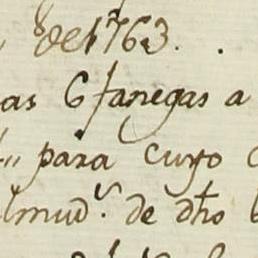 de 1763.
as 6 fanegas a
para cuyo
lmud.s de dho